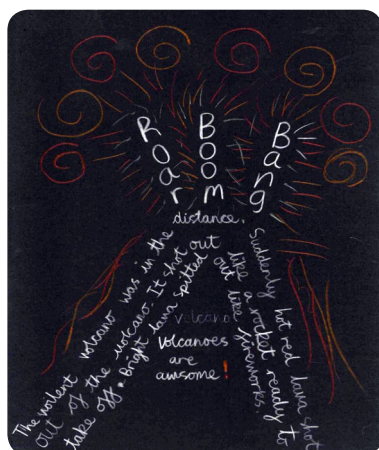 Roar
Boom
Bang
The voilent volcano was in the
distance.
Suddenly hot red lava shot
out of the volcano. It shot out
like a rocket ready to
take off. Bright lava spitted
out like fireworks.
volcano
Volcanoes
are
awsome!